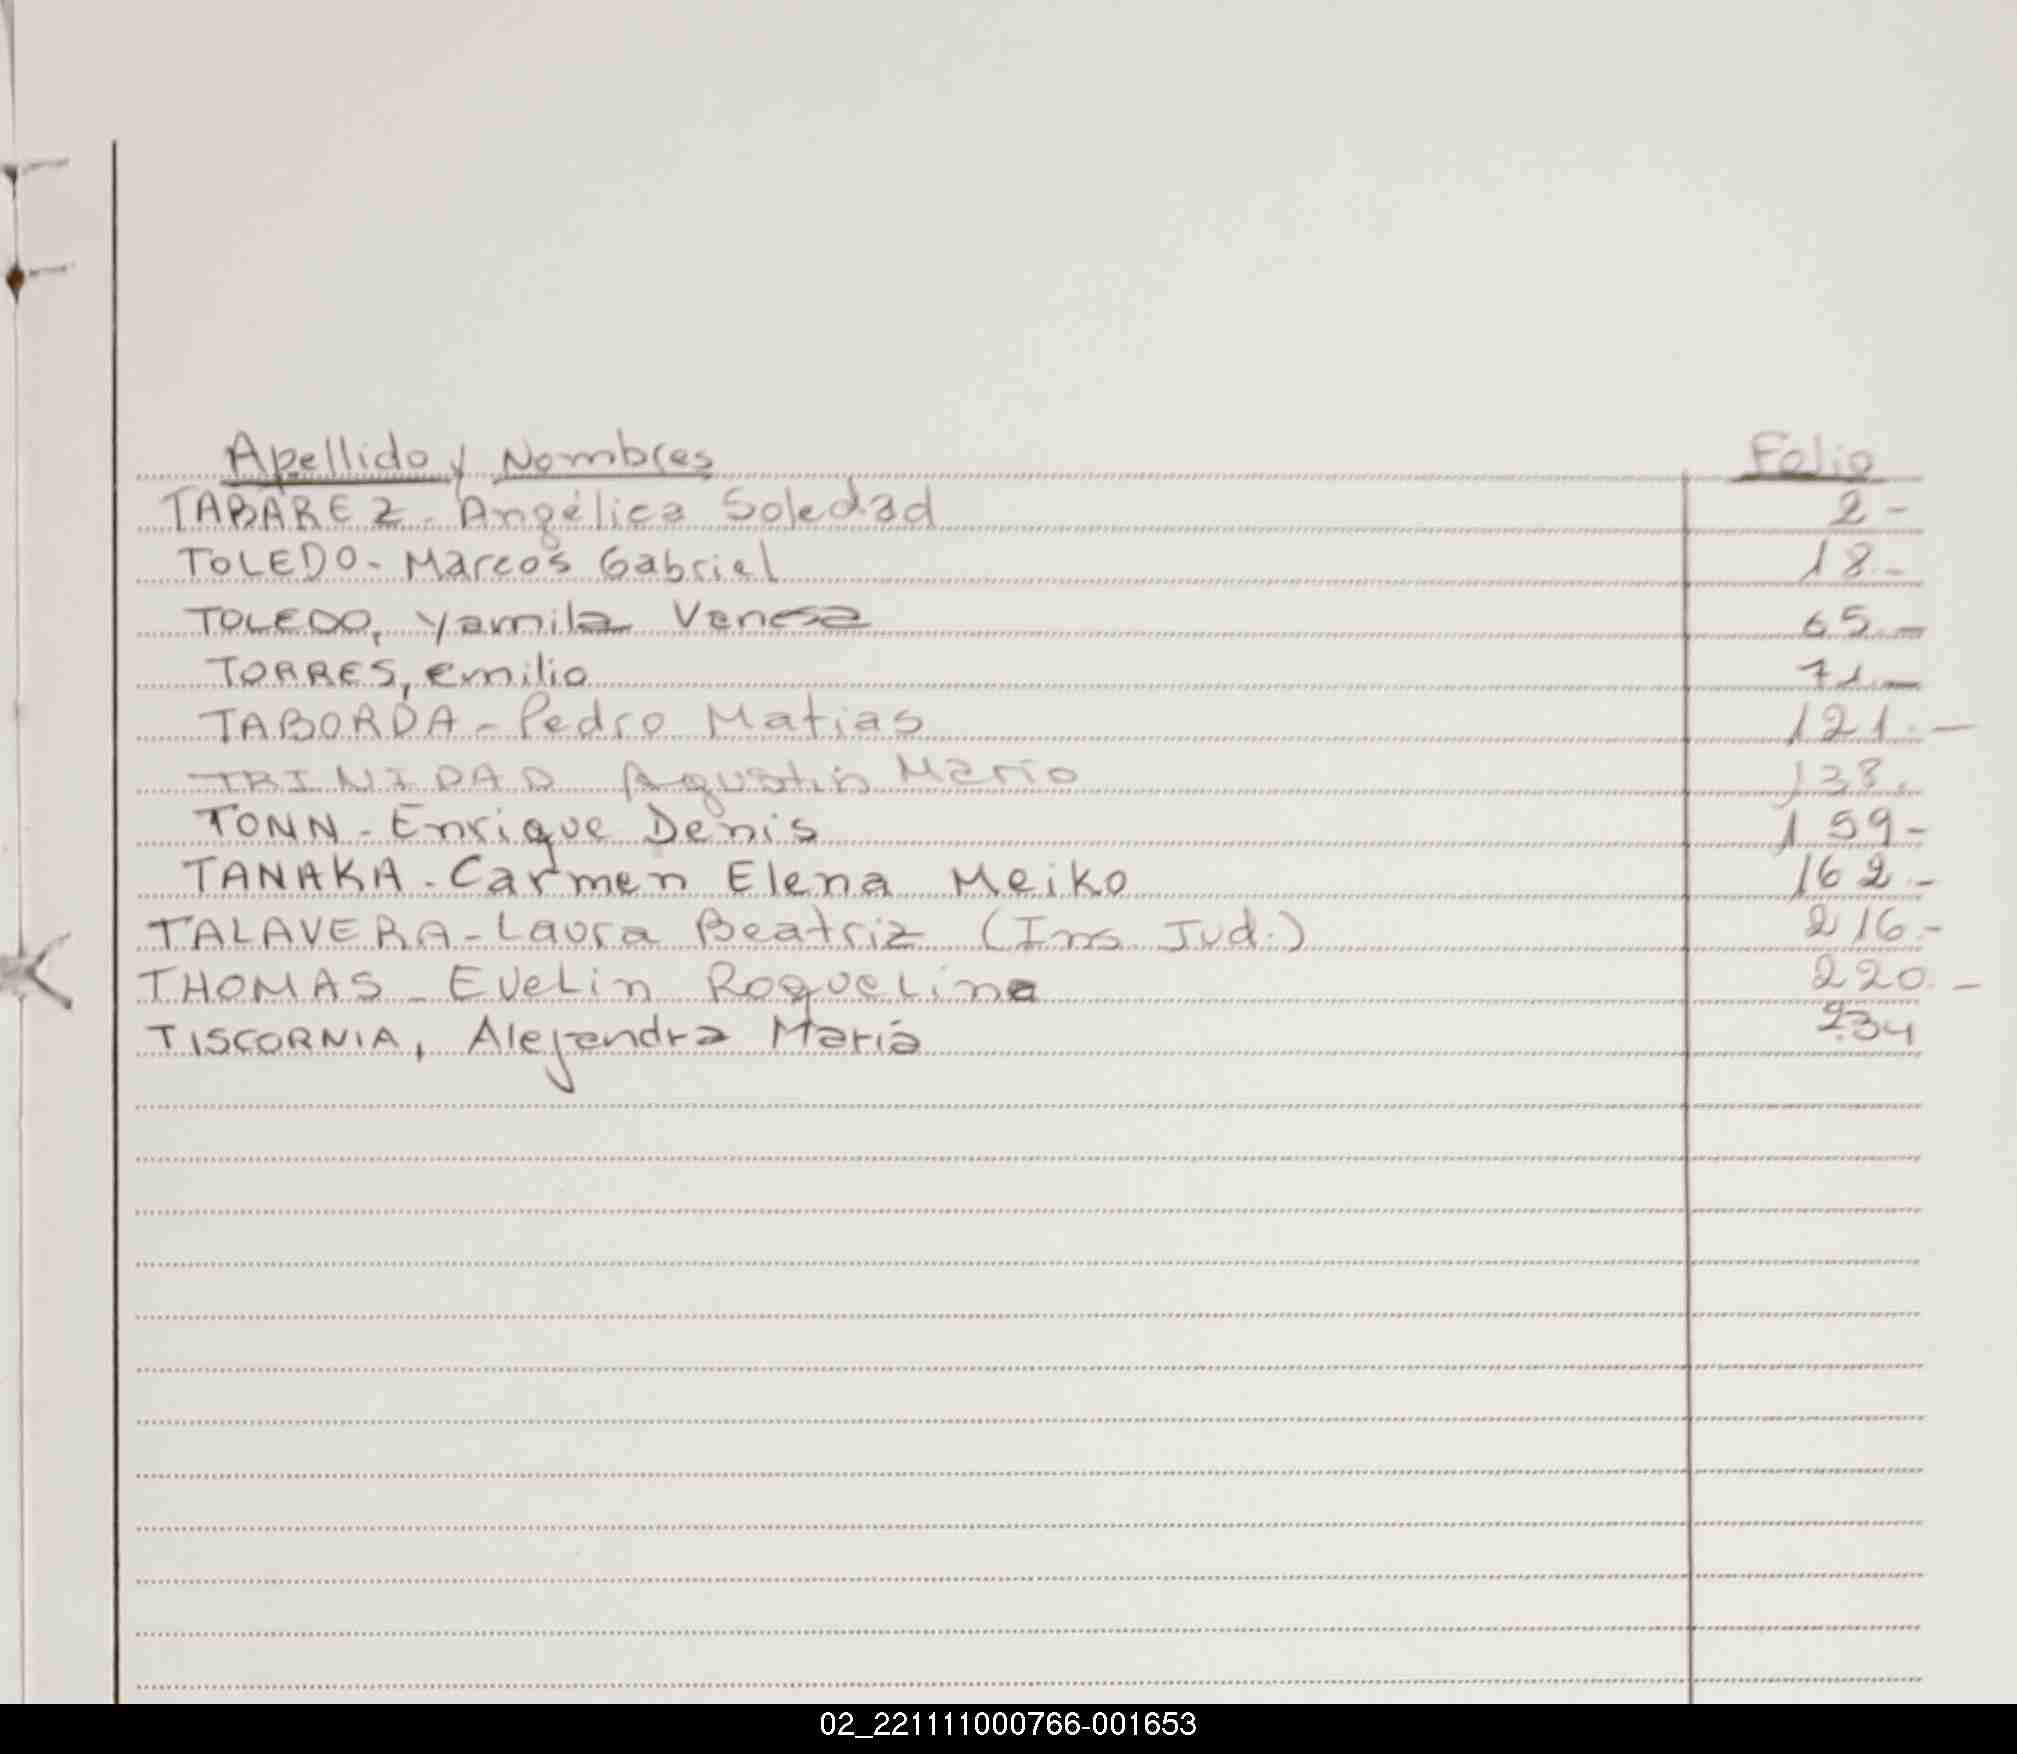 Apellido y Nombres Folio
TABAREZ - Angélica Soledad 2 -
TOLEDO - Marcos Gabriel 18.-
TOLEDO, Yamila Vanesa 65.-
TORRES, emilio 71.-
TABORDA - Pedro Matias 121.-
TRINIDAD Agustin Mario 138.
TONN - Enrique Denis 159-
TANAKA - Carmen Elena Meiko 162.-
TALAVERA - Laura Beatriz (Ins. Jud.) 216.-
THOMAS - Evelin Roquelina 220.-
TISCORNIA, Alejandra María 234
02_221111000766-001653